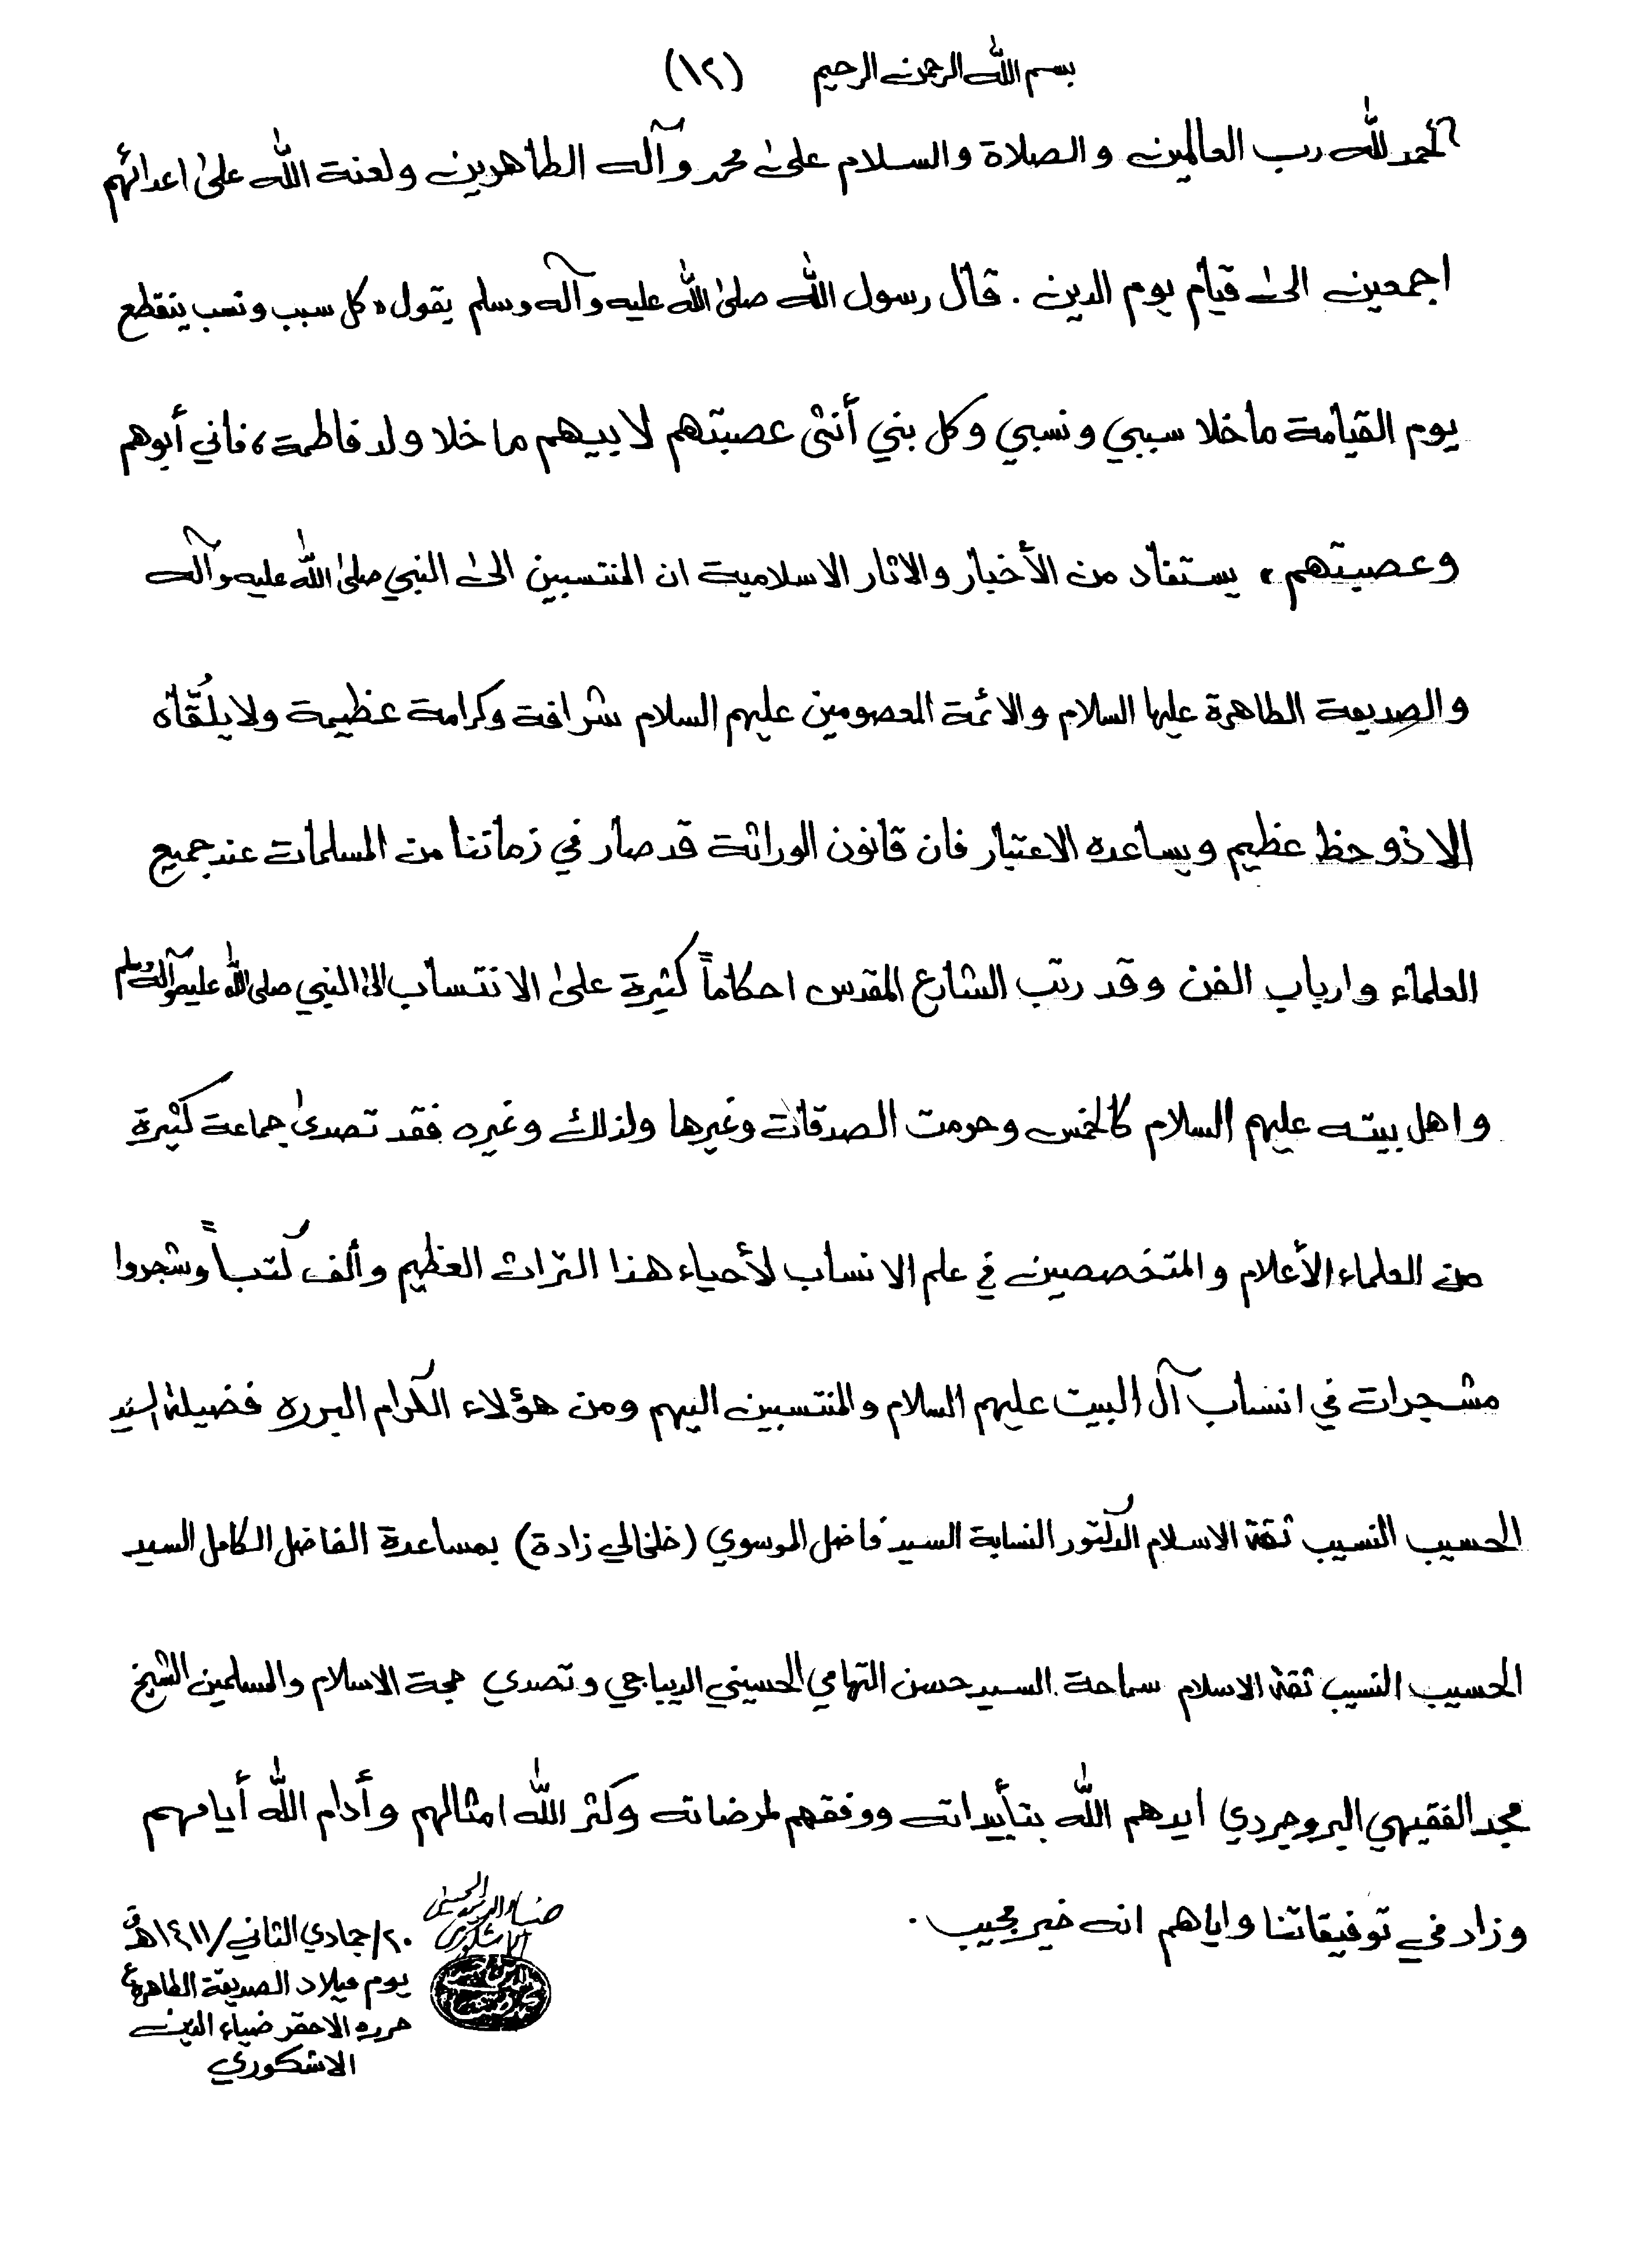 بسم الله الرحمن الرحيم (١٢)
الحمد لله رب العالمين والصلاة والسلام على محمد وآله الطاهرين ولعنة الله على اعدائهم
اجمعين الى قيام يوم الدين . قال رسول الله صلى الله عليه وآله وسلم يقول «كل سبب ونسب ينقطع
يوم القيامة ما خلا سببي ونسبي وكل بني أنثى عصبتهم لابيهم ما خلا ولد فاطمة، فاني أبوهم
وعصبتهم» يستفاد من الأخبار والاثار الاسلامية ان المنتسبين الى النبي صلى الله عليه وآله
والصديقة الطاهرة عليها السلام والائمة المعصومين عليهم السلام شرافة وكرامة عظيمة ولا يلقّاه
الا ذو حظ عظيم ويساعده الاعتبار فان قانون الوراثة قد صار في زماننا من المسلمات عند جميع
العلماء وارباب الفن وقد رتب الشارع المقدس احكاماً كثيرة على الانتساب الى النبي صلى الله عليه وآله وسلم
واهل بيته عليهم السلام كالخمس وحرمت الصدقات وغيرها ولذلك وغيره فقد تصدى جماعة كثيرة
من العلماء الأعلام والمتخصصين في علم الانساب لأحياء هذا التراث العظيم وألف كتباً وشجروا
مشجرات في انساب آل البيت عليهم السلام والمنتسبين اليهم ومن هؤلاء الكرام البررة فضيلة السيد
الحسيب النسيب ثقة الاسلام الدكتور النسابة السيد فاضل الموسوي (خلخالي زادة) بمساعدة الفاضل الكامل السيد
الحسيب النسيب ثقة الاسلام سماحة السيد حسن التهامي الحسيني الديباجي وتصدي حجة الاسلام والمسلمين الشيخ
محمد الفقيهي البروجردي ايدهم الله بتأييداته ووفقهم لمرضاته وكثر الله امثالهم وأدام الله أيامهم
وزاد في توفيقاتنا واياهم انه خير مجيب .
ضياء الدين الحسيني
الاشكوري
٢٠/جمادي الثاني/١٤١١هـ ق
يوم ميلاد الصديقة الطاهرة ع
حرره الاحقر ضياء الدين
الاشكوري